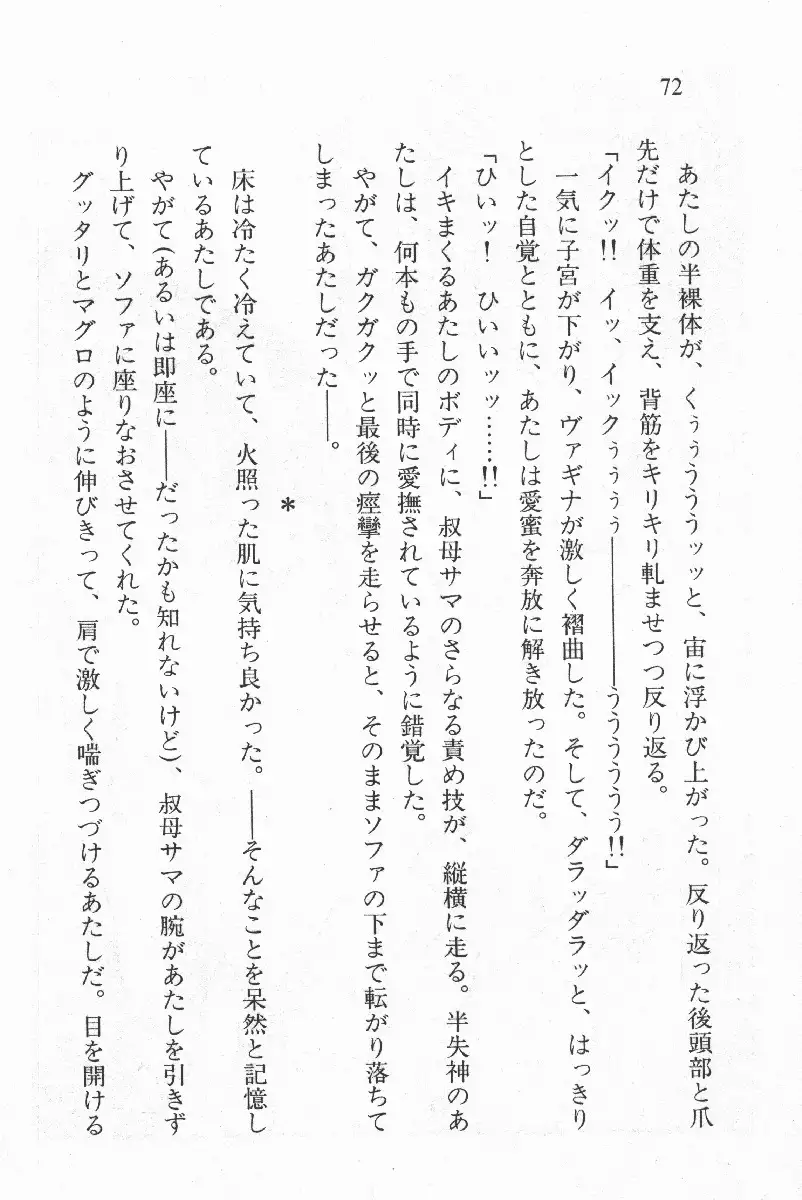 72
あたしの半裸体が、くぅぅうううッッと、宙に浮かび上がった。反り返った後頭部と爪
先だけで体重を支え、背筋をキリキリ軋ませつつ反り返る。
「イクッ!! イッ、イックぅぅぅぅ――――うううううう!!」
一気に子宮が下がり、ヴァギナが激しく褶曲した。そして、ダラッダラッと、はっきり
とした自覚とともに、あたしは愛蜜を奔放に解き放ったのだ。
「ひいッ! ひいいッッ……!!」
イキまくるあたしのボディに、叔母サマのさらなる責め技が、縦横に走る。半失神のあ
たしは、何本もの手で同時に愛撫されているように錯覚した。
やがて、ガクガクッと最後の痙攣を走らせると、そのままソファの下まで転がり落ちて
しまったあたしだった――。
*
床は冷たく冷えていて、火照った肌に気持ち良かった。――そんなことを呆然と記憶し
ているあたしである。
やがて(あるいは即座に――だったかも知れないけど)、叔母サマの腕があたしを引きず
り上げて、ソファに座りなおさせてくれた。
グッタリとマグロのように伸びきって、肩で激しく喘ぎつづけるあたしだ。目を開ける